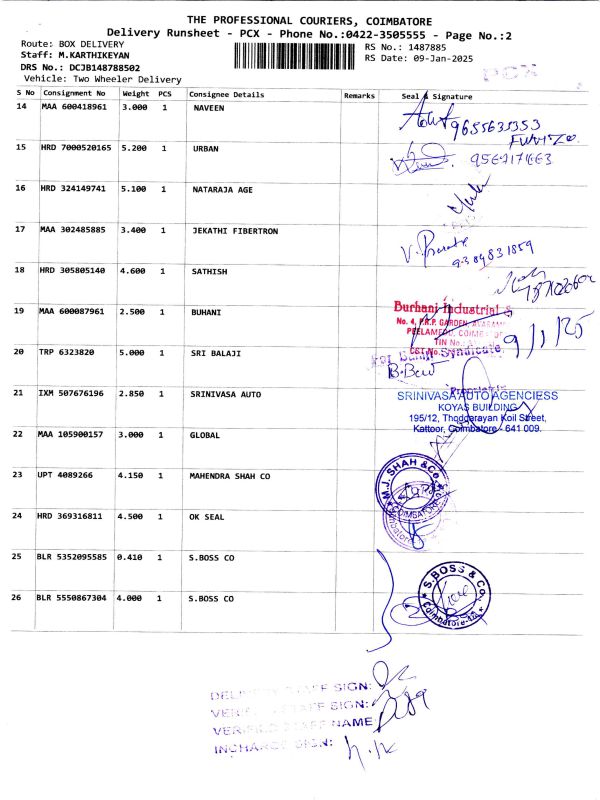 THE PROFESSIONAL COURIERS, COIMBATORE
Delivery Runsheet - PCX - Phone No.:0422-3505555 - Page No.:2
Route: BOX DELIVERY
RS No.: 1487885
Staff: M.KARTHIKEYAN
RS Date: 09-Jan-2025
DRS No.: DCJB148788502
PCX
Vehicle: Two Wheeler Delivery
S No Consignment No Weight PCS Consignee Details Remarks Seal & Signature
14 MAA 600418961 3.000 1 NAVEEN
9655635353
15 HRD 7000520165 5.200 1 URBAN
16 HRD 324149741 5.100 1 NATARAJA AGE
17 MAA 302485885 3.400 1 JEKATHI FIBERTRON
9389831859
18 HRD 305805140 4.600 1 SATHISH
19 MAA 600087961 2.500 1 BUHANI
Burhani Industrial S
No. 4, P.R.P. GARDEN, AVARAM
PEELAMEDU, COIMB
TIN No.
CST No.
9/1/25
20 TRP 6323820 5.000 1 SRI BALAJI
Syndicate
21 IXM 507676196 2.850 1 SRINIVASA AUTO
SRINIVASA AUTO AGENCIESS
KOYAS BUILDING
195/12, Thadagayan Koil Street,
Kattoor, Coimbatore - 641 009.
22 MAA 105900157 3.000 1 GLOBAL
23 UPT 4089266 4.150 1 MAHENDRA SHAH CO
M.J. SHAH & Co.
COIMBATORE
24 HRD 369316811 4.500 1 OK SEAL
25 BLR 5352095585 0.410 1 S.BOSS CO
26 BLR 5550867304 4.000 1 S.BOSS CO
S.BOSS & Co.
Coimbatore-
DELIVERY STAFF SIGN:
VERIFIED STAFF SIGN:
VERIFIED STAFF NAME:
INCHARGE SIGN: